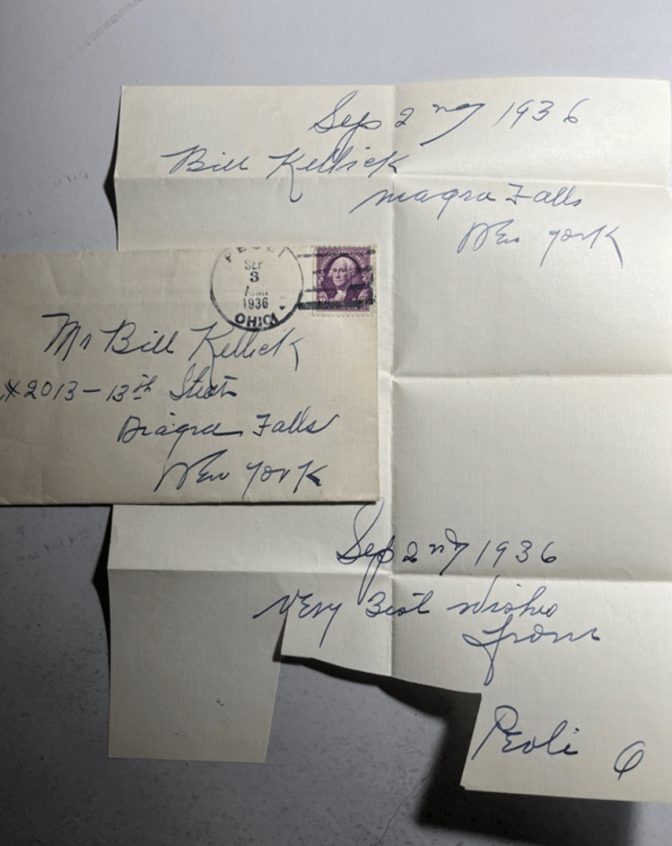 Sep 2nd 1936
Bill Kellick
Niagra Falls
New York
PEOLI
SEP
3
1936
OHIO
Mr Bill Kellick
2013-13th Street
Niagra Falls
New York
Sep 2nd 1936
Very Best Wishes
from
Peoli O